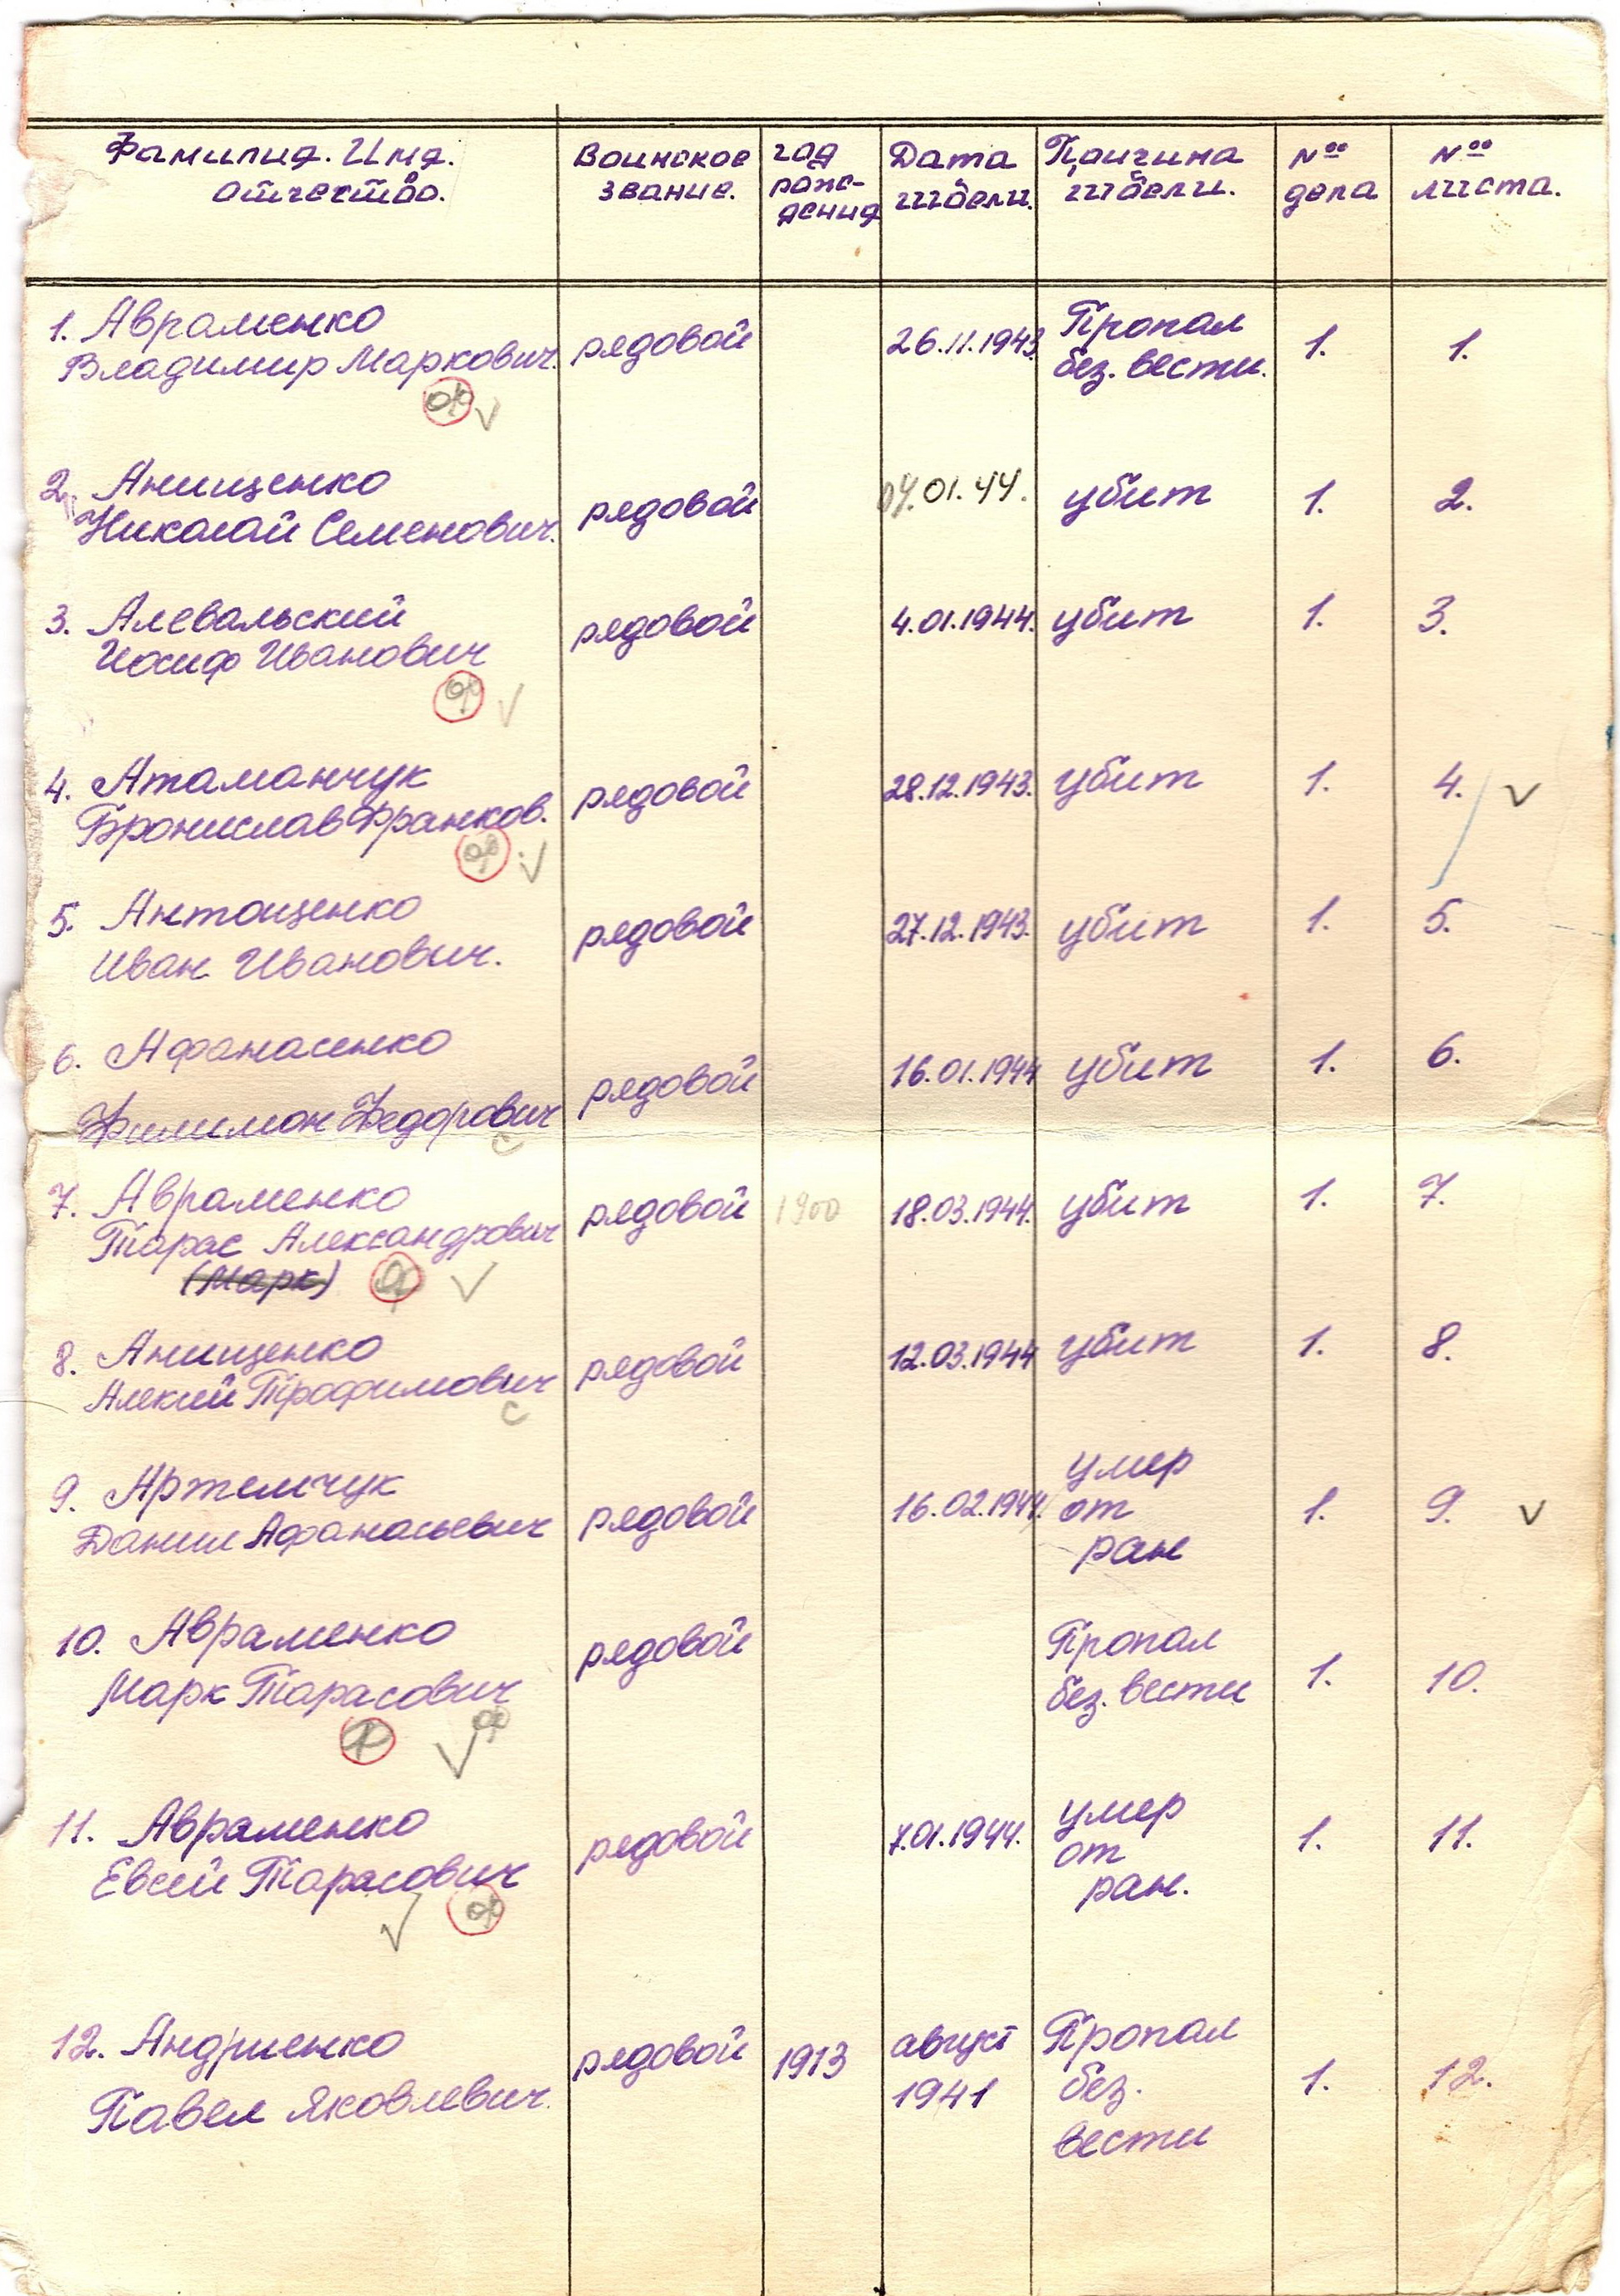 Фамилия. Имя. отчество.
Воинское звание.
год рождения
Дата гибели.
Причина гибели.
№ дела
№ листа.
1. Авраменко
Владимир Маркович. рядовой 26.11.1943. Пропал без. вести. 1. 1.
2. Анищенко
Николай Семенович. рядовой 04.01.44. убит 1. 2.
3. Алевальский
Иосиф Иванович рядовой 4.01.1944. убит 1. 3.
4. Атаманчук
Бронислав Франков. рядовой 28.12.1943. убит 1. 4.
5. Антощенко
Иван Иванович. рядовой 27.12.1943. убит 1. 5.
6. Афанасенко
Филимон Федорович рядовой 16.01.1944 убит 1. 6.
7. Авраменко
Тарас Александрович рядовой 1900 18.03.1944. убит 1. 7.
(Марк)
8. Анищенко
Алексий Трофимович рядовой 12.03.1944 убит 1. 8.
9. Артемчук
Данил Афанасьевич рядовой 16.02.1944. умер от ран 1. 9.
10. Авраменко
Марк Тарасович рядовой Пропал без. вести 1. 10.
11. Авраменко
Евсей Тарасович рядовой 7.01.1944. умер от ран. 1. 11.
12. Андриенко
Павел Яковлевич. рядовой 1913 август 1941 Пропал без. вести 1. 12.